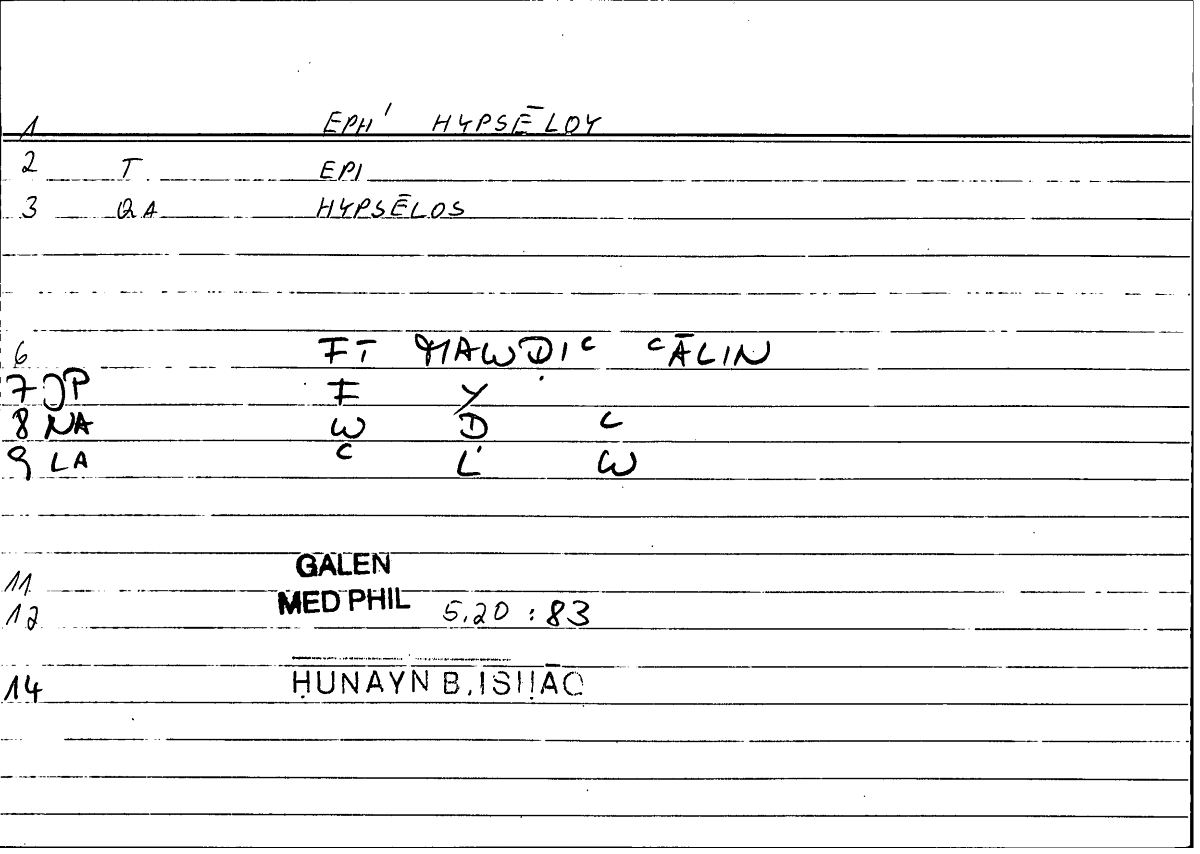 1 EPH' HYPSĒLOY
2 T. EPI
3 QA HYPSĒLOS
6 FĪ MAWḌIᶜ ᶜĀLIN
7 JP F Y
8 NA W Ḍ ᶜ
9 LA ᶜ L W
11 GALEN
12 MED PHIL 5.20 : 83
14 ḤUNAYN B. ISḤĀQ